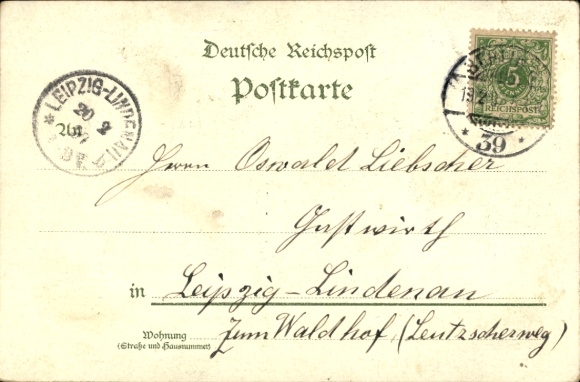 Deutsche Reichspost
Postkarte
5
PFENNIG
REICHSPOST
39
LEIPZIG-LINDENAU
20 2
An
Herrn Oswald Liebscher
Gastwirth
in Leipzig-Lindenau
Wohnung
(Straße und Hausnummer)
Zum Waldhof, (Leutzscherweg)